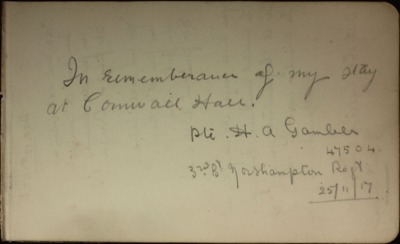 In rememberance of my stay
at Cornwall Hall.
Pte. H. A Gamble
47504
3rd Bt Northampton Regt
25/11/17